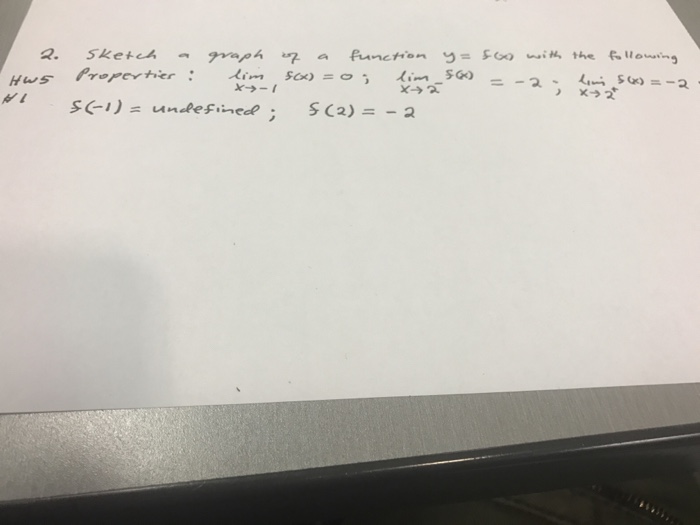 2. Sketch a graph of a function y = f(x) with the following
HW5 Properties : lim x→-1 f(x) = 0 ; lim x→2⁻ f(x) = -2 ; lim x→2⁺ f(x) = -2
#1 f(-1) = undefined ; f(2) = -2